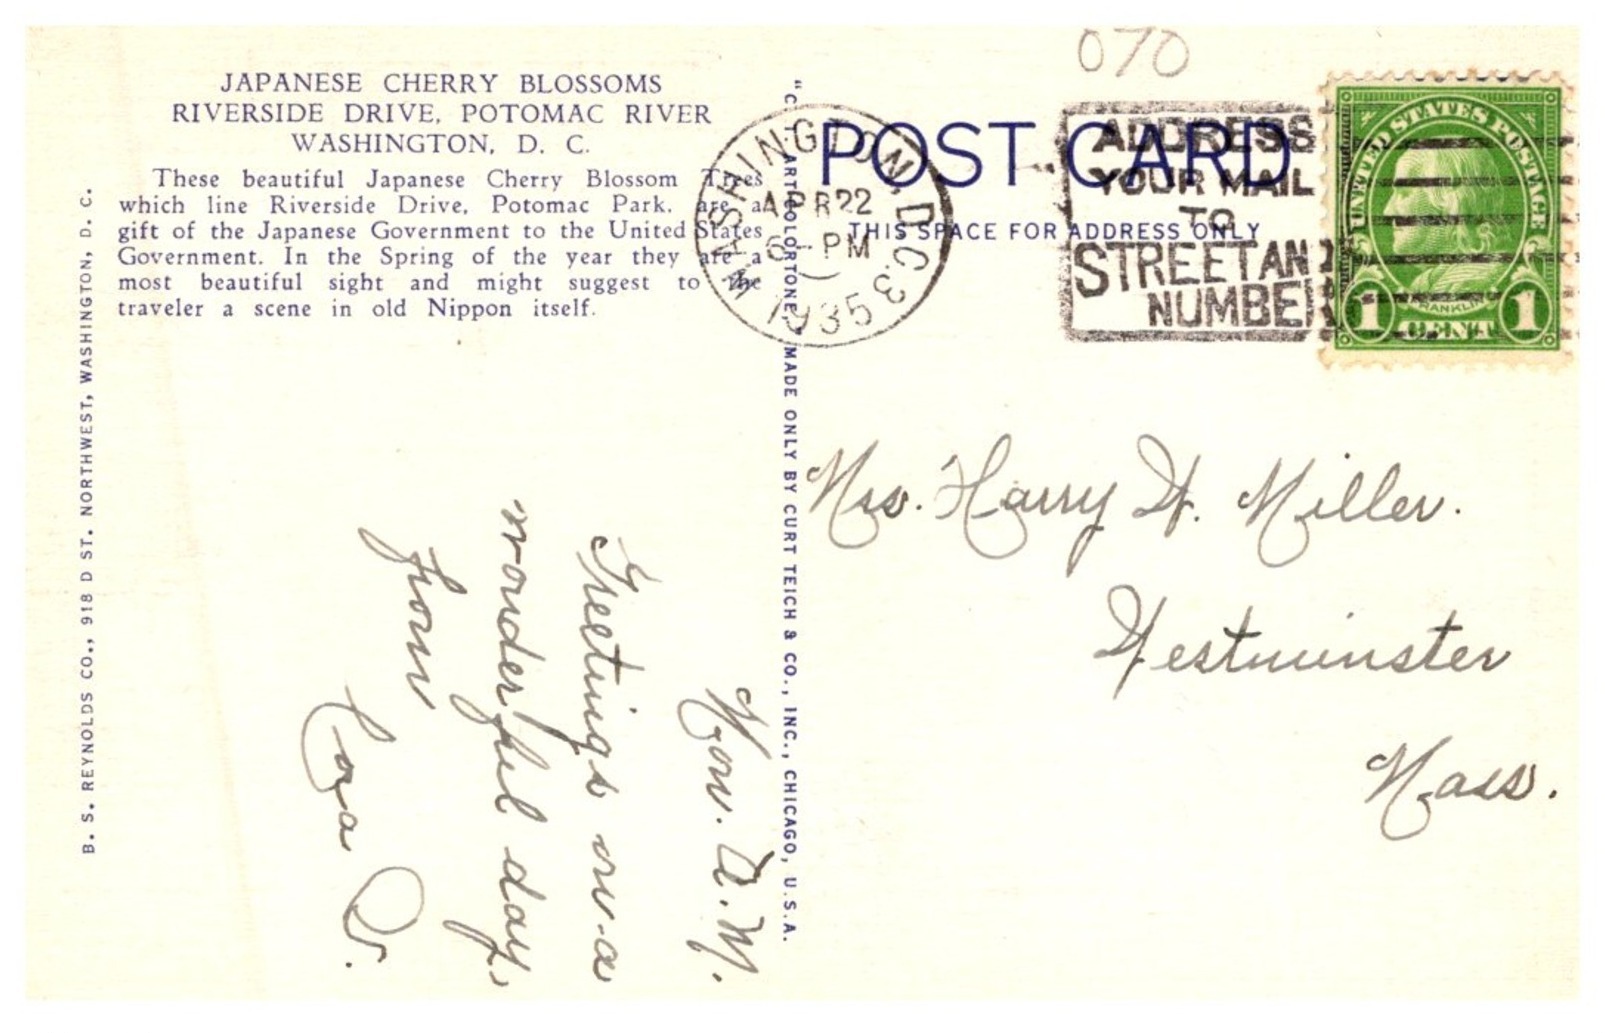 070
JAPANESE CHERRY BLOSSOMS
RIVERSIDE DRIVE, POTOMAC RIVER
WASHINGTON, D. C.
These beautiful Japanese Cherry Blossom Trees
which line Riverside Drive, Potomac Park, are a
gift of the Japanese Government to the United States
Government. In the Spring of the year they are a
most beautiful sight and might suggest to the
traveler a scene in old Nippon itself.
B. S. REYNOLDS CO., 918 D ST. NORTHWEST, WASHINGTON, D. C.
"C. T. ART-COLORTONE" MADE ONLY BY CURT TEICH & CO., INC., CHICAGO, U.S.A.
POST CARD
THIS SPACE FOR ADDRESS ONLY
WASHINGTON, D.C.
APR 22
6 - PM
1935
ADDRESS
YOUR MAIL
TO
STREET AND
NUMBER
UNITED STATES POSTAGE
FRANKLIN
1 CENT 1
Mon. A.M.
Greetings on a
wonderful day,
from
Cora D.
Mrs. Harry W. Miller.
Westminster
Mass.